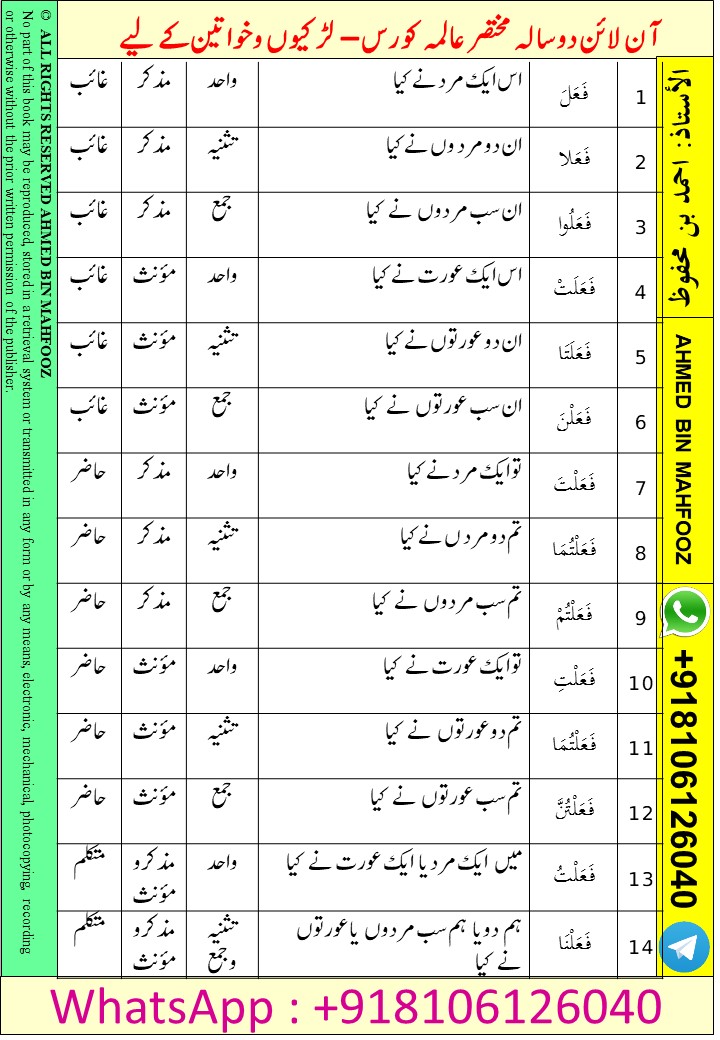 آن لائن دو سالہ مختصر عالمہ کورس – لڑکیوں و خواتین کے لیے
1 فَعَلَ اس ایک مرد نے کیا واحد مذکر غائب
2 فَعَلا ان دو مردوں نے کیا تثنیہ مذکر غائب
3 فَعَلُوا ان سب مردوں نے کیا جمع مذکر غائب
4 فَعَلَتْ اس ایک عورت نے کیا واحد مؤنث غائب
5 فَعَلَتَا ان دو عورتوں نے کیا تثنیہ مؤنث غائب
6 فَعَلْنَ ان سب عورتوں نے کیا جمع مؤنث غائب
7 فَعَلْتَ تو ایک مرد نے کیا واحد مذکر حاضر
8 فَعَلْتُمَا تم دو مردں نے کیا تثنیہ مذکر حاضر
9 فَعَلْتُمْ تم سب مردوں نے کیا جمع مذکر حاضر
10 فَعَلْتِ تو ایک عورت نے کیا واحد مؤنث حاضر
11 فَعَلْتُمَا تم دو عورتوں نے کیا تثنیہ مؤنث حاضر
12 فَعَلْتُنَّ تم سب عورتوں نے کیا جمع مؤنث حاضر
13 فَعَلْتُ میں ایک مرد یا ایک عورت نے کیا واحد مذکر و متکلم
مؤنث
14 فَعَلْنَا ہم دو یا ہم سب مردوں یا عورتوں تثنیہ مذکر و متکلم
نے کیا و جمع مؤنث
الأستاذ: احمد بن محفوظ
AHMED BIN MAHFOOZ
+918106126040
© ALL RIGHTS RESERVED AHMED BIN MAHFOOZ
No part of this book may be reproduced, stored in a retrieval system or transmitted in any form or by any means, electronic, mechanical, photocopying, recording
or otherwise without the prior written permission of the publisher.
WhatsApp : +918106126040